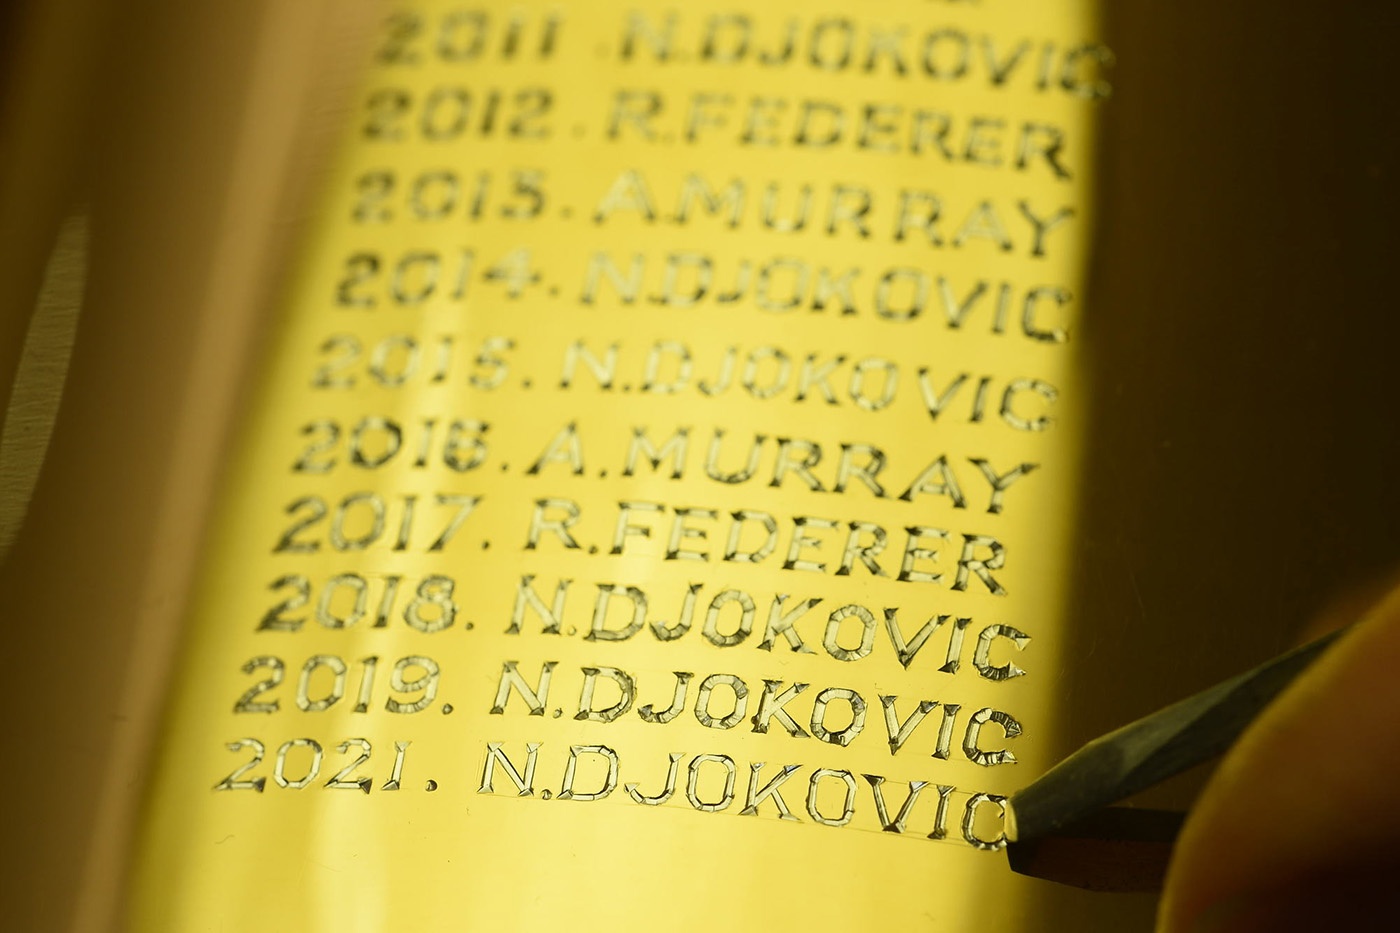 2011 . N.DJOKOVIC
2012 . R.FEDERER
2013. A.MURRAY
2014. N.DJOKOVIC
2015. N.DJOKOVIC
2016. A.MURRAY
2017. R.FEDERER
2018. N.DJOKOVIC
2019. N.DJOKOVIC
2021. N.DJOKOVIC